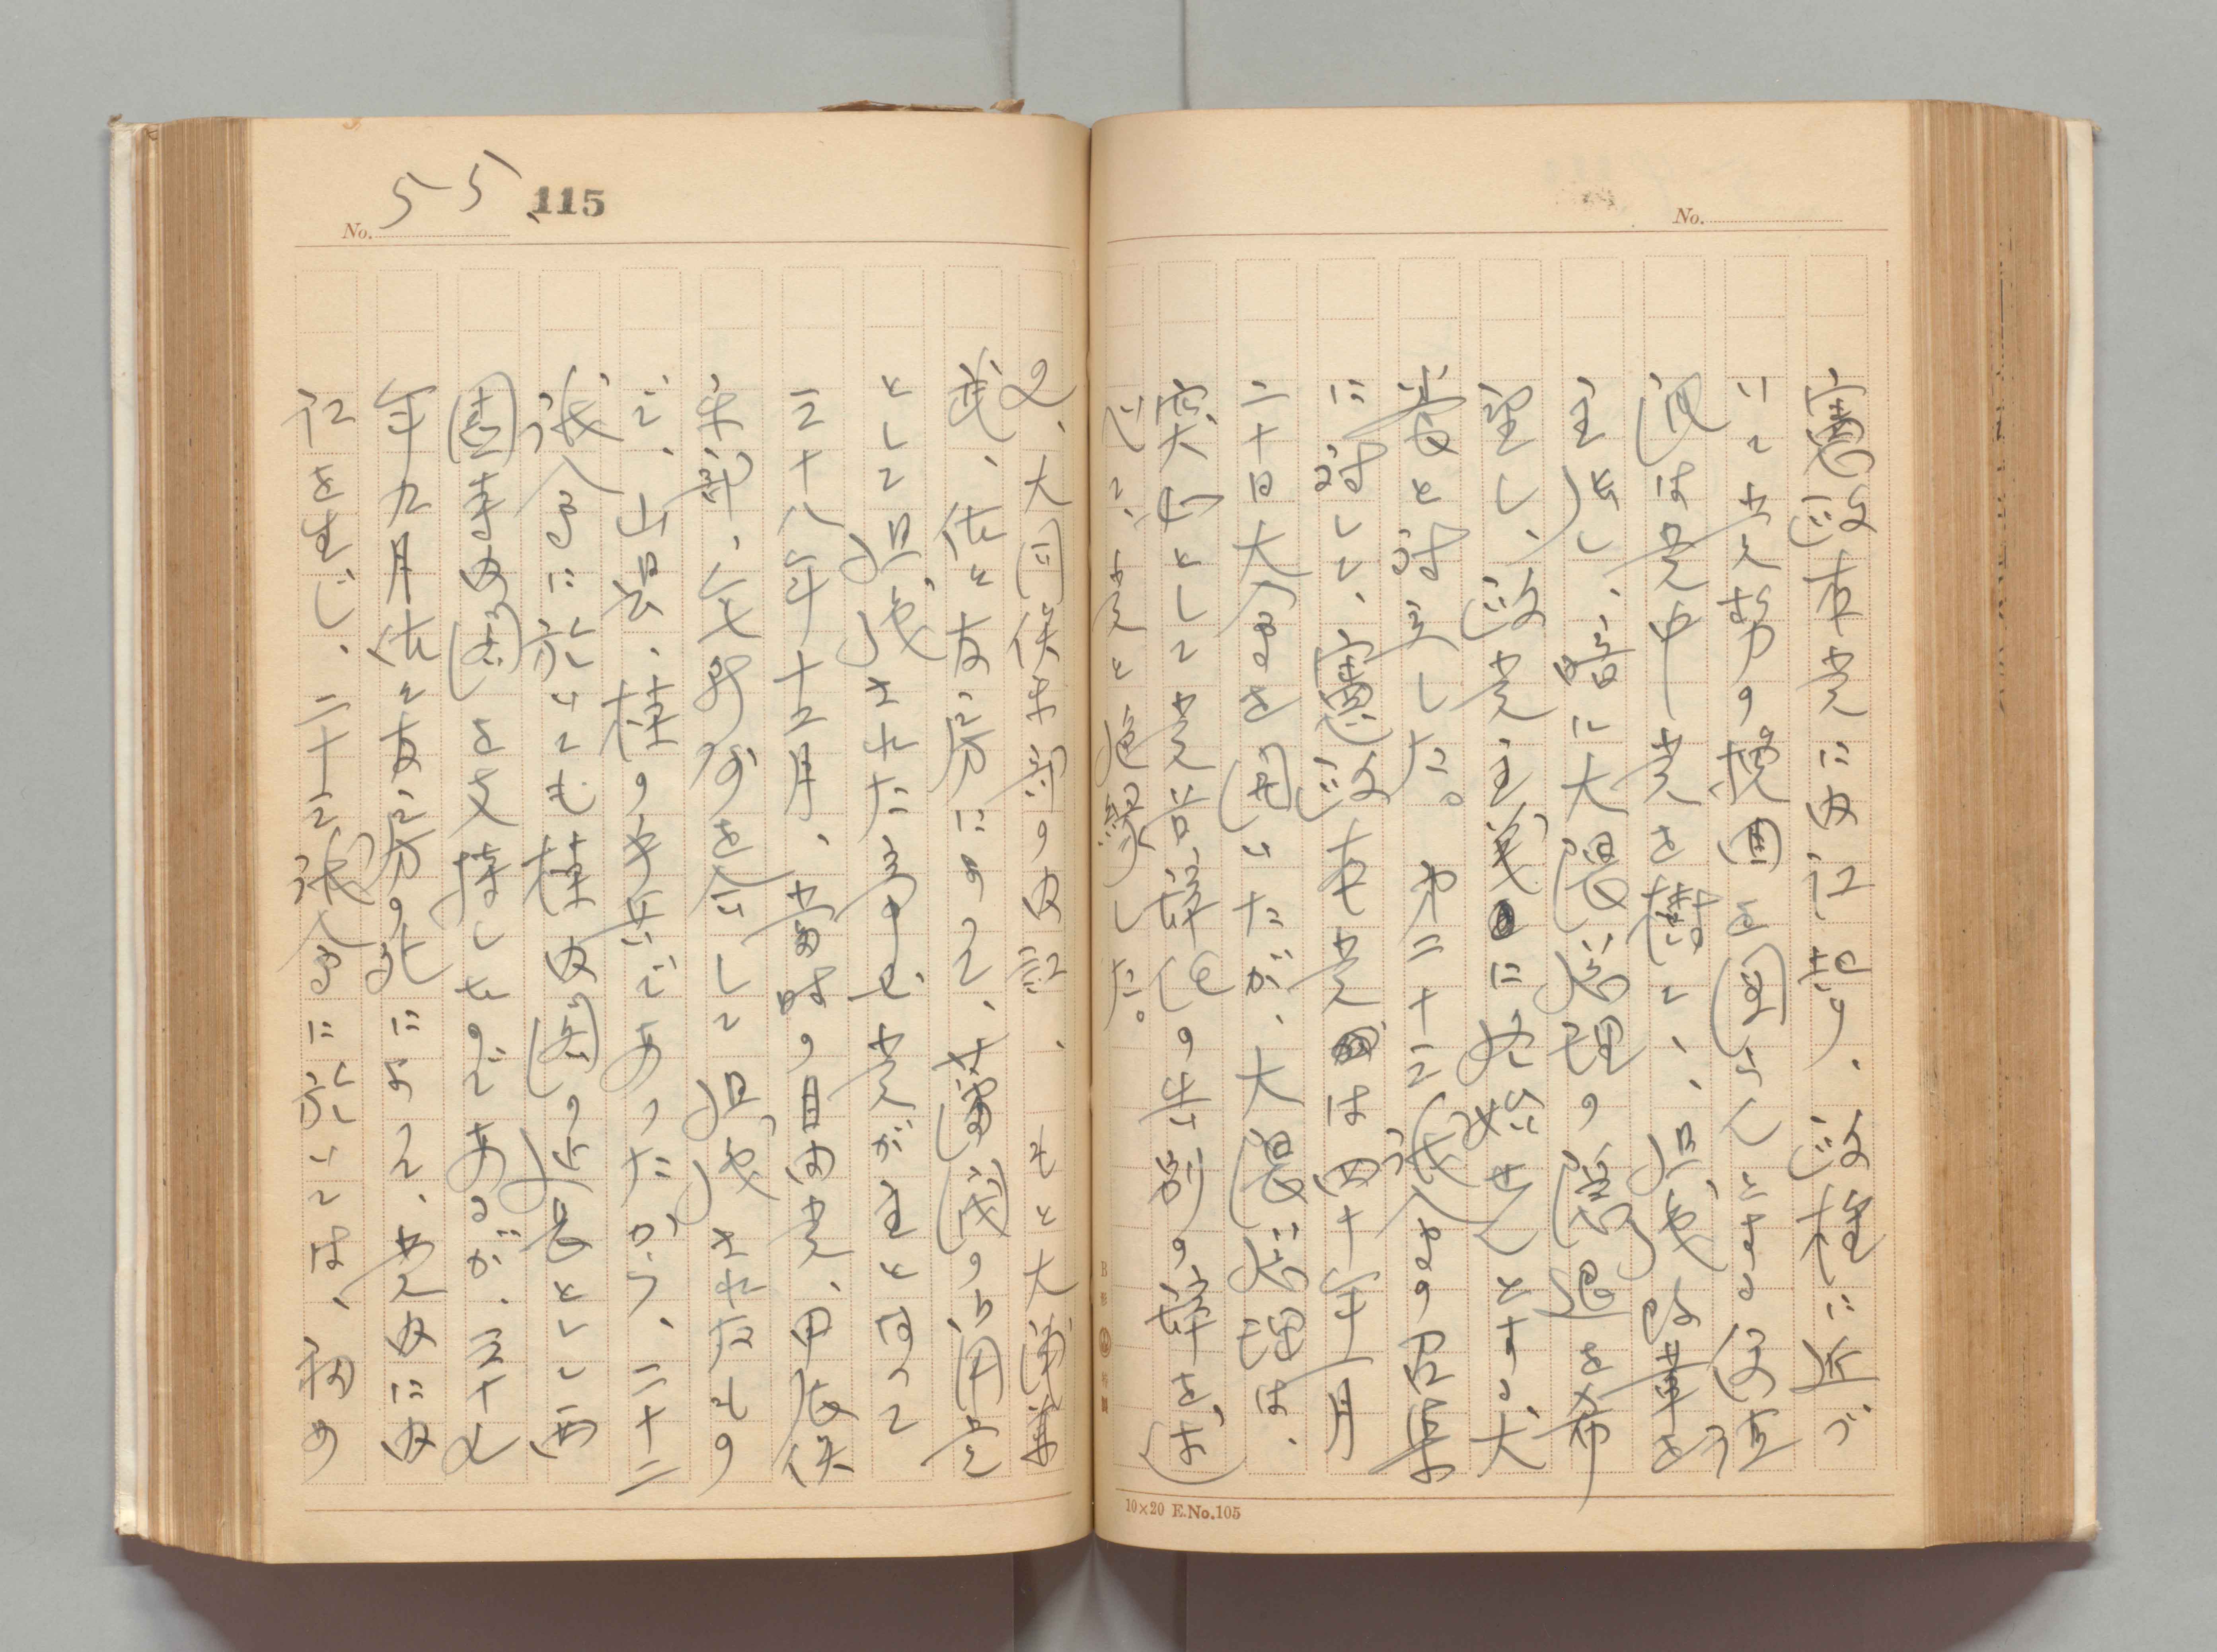 No.
憲政本党に内訌起り、政権に近づ
いて党勢の挽回を図らんとする便宜
派は党中党を樹て、担ぎ改革を
主張し、暗に大隈総理の隠退を希
望し、政党主義に終始せんとする犬
養と対立した。第二十三議会の召集
に対して、憲政本党は四十年一月
二十日大会を開いたが、大隈総理は、
突如として党首辞任の告別の辞を述
べて、党と絶縁した。
10×20 E.No.105
No. 55
115
又、大同倶楽部の内訌、もと大浦兼
武、佐々友房によって、薩派の御用党
として組織された帝国党が主となって
三十八年十二月、当時の自由党、甲辰倶
楽部、有志新party
で、山県、桂の与党であったから、二十二
議会に於いても桂内閣の延長として西
園寺内閣を支持したのであるが、三十九
年九月佐々友房の死によって、党内に内
訌を生じ、二十三議会に於いては、初め